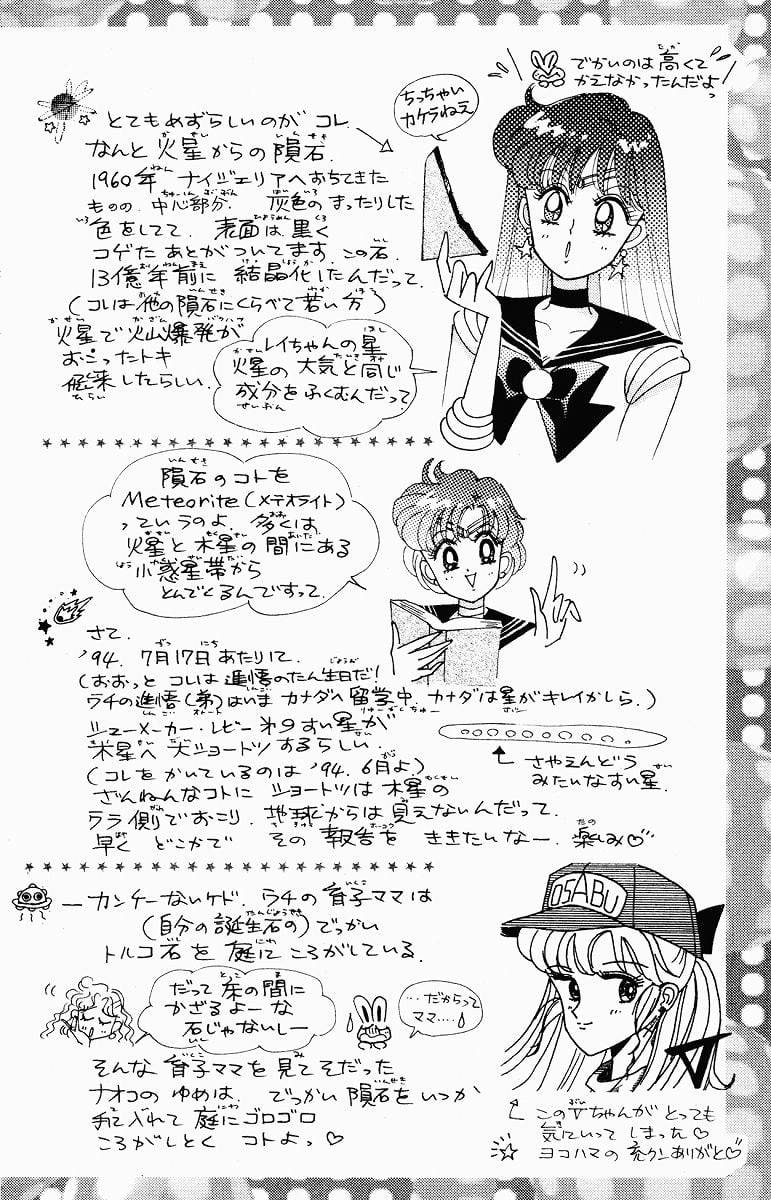 でかいのは高くて
かえなかったんだよっ
ちっちゃい
カケラねえ
とてもめずらしいのが コレ.
なんと 火星からの隕石.
1960年 ナイジェリアへおちてきた
ものの. 中心部分. 灰色の まったりした
色をしてて. 表面は 黒く
コゲた あとが ついてます この石.
13億年前に 結晶化したんだって.
(コレは他の隕石にくらべて若い方)
火星で火山爆発が
おこったトキ
飛来したらしい.
レイちゃんの星
火星の大気と同じ
成分をふくむんだって.
隕石のコトを
Meteorite(メテオライト)
っていうのよ. 多くは
火星と木星の間にある
小惑星帯から
とんでくるんですって.
さて.
'94. 7月17日あたりに.
(おおっと コレは進悟のたん生日だ!
ウチの進悟(弟)はいま カナダへ留学中. カナダは星がキレイかしら.)
シューメーカー・レビー 第9すい星が
木星へ 大ショートツするらしい.
(コレをかいているのは '94. 6月よ)
ざんねんなコトに ショートツは 木星の
ウラ側でおこり. 地球からは見えないんだって.
早く どこかで その 報告を ききたいなー. 楽しみ♡
さやえんどう
みたいなすい星.
―カンケーないケド. ウチの育子ママは
(自分の誕生石の)でっかい
トルコ石を 庭に ころがしている.
だって 床の間に
かざるよーな
石じゃないしー
…だからって
ママ….
そんな 育子ママを見てそだった
ナオコのゆめは. でっかい隕石をいつか
手に入れて 庭にゴロゴロ
ころがしとく コトよっ♡
OSABU
このVちゃんが とっても
気にいって しまった♡
ヨコハマの 充クンありがと♡